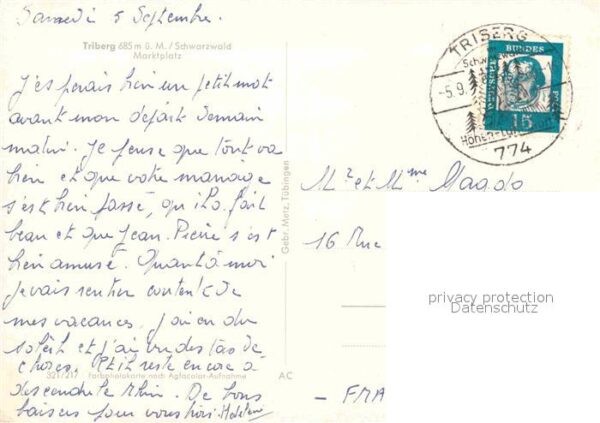 Samedi 5 Septembre.
Triberg 685 m ü. M. / Schwarzwald
Marktplatz
J'espérais bien un petit mot
avant mon départ demain
matin. Je pense que tout va
bien et que votre mariage
s'est bien passé, qu'il a fait
beau et que Jean. Pierre s'est
bien amusé. Quant à moi
je vais rentrer contente de
mes vacances, j'ai eu du
soleil et j'ai vu des tas de
choses, et il reste encore à
descendre le Rhin. De bons
baisers pour vous trois.
3217217 Farbfotokarte nach Agfacolor-Aufnahme
AC
Gebr. Metz, Tübingen
TRIBERG
Schwarzwald
-5.9.
Höhen-Luft
774
BUNDES
15
Mr et Mme
16 Rue
privacy protection
Datenschutz
- FRA